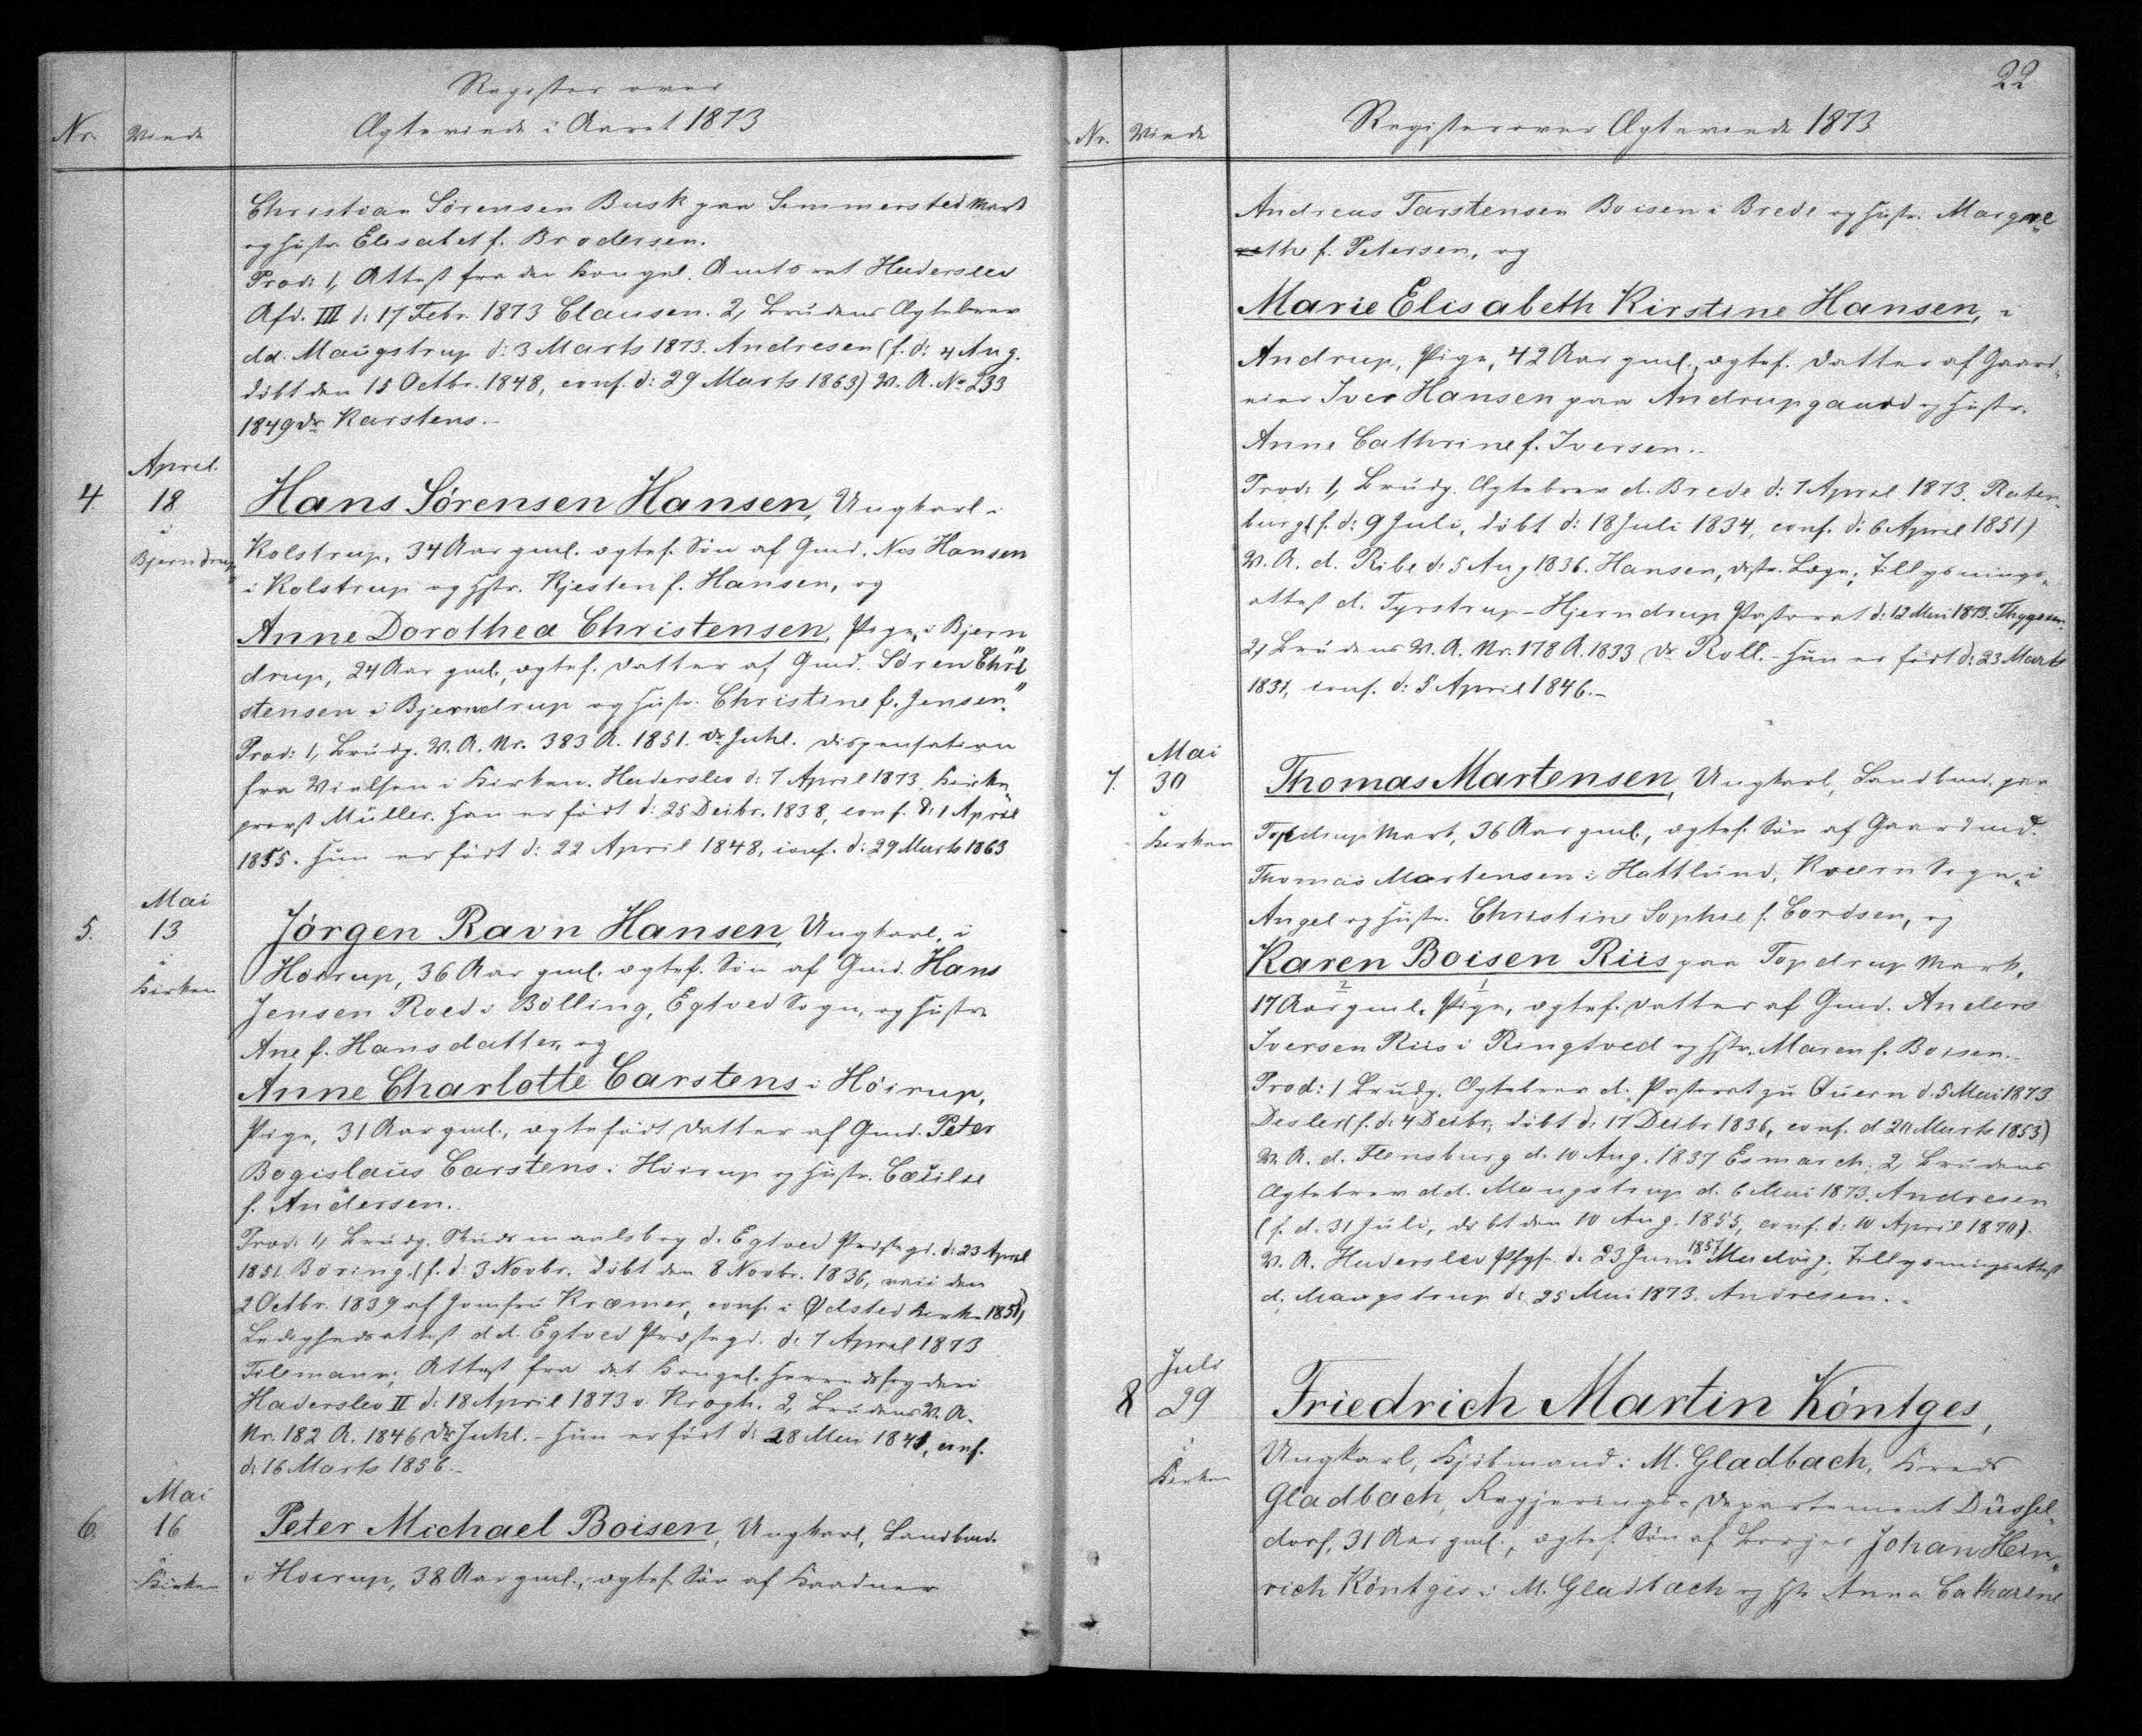 Register over
Nr. Viede Ægteviede i Aaret 1873
Christian Sörensen Busk paa Sommersted Mark
og Hustr. Elisabet f. Brodersen.
Prod: 1, Attest fra den Kongel. Amtsret Haderslev
Afd. III d: 17 Febr. 1873 Clausen. 2, Brudens Ægtebrev
dd. Maugstrup d: 3 Marts 1873. Andresen (f. d: 4 Aug.
döbt den 15 Octbr. 1848, conf. d: 29 Marts 1863) V. A. No 233
1849 Dr Karstens.-
April
4 18 Hans Sörensen Hansen, Ungkarl i
i
Bjerndrup Kolstrup, 34 Aar gml. ægtef. Sön af Gmd. Nis Hansen
i Kolstrup og Hstr. Kjesten f. Hansen, og
Anne Dorothea Christensen, Pige, i Bjern
drup, 24 Aar gml., ægtef. Datter af Gmd. Sören Chri
stensen i Bjerndrup og Hustr. Christine f. Jensen.
Prod: 1, Brudg. V. A. Nr. 383 A. 1851. Dr Juhl. Dispensation
fra Vielsen i Kirken. Haderslev d: 7 April 1873, Kirke
provst Müller. Han er födt d: 25 Decbr. 1838, conf. d: 1 April
1855. Hun er födt d: 22 April 1848, conf. d: 29 Marts 1863
Mai
5. 13 Jörgen Ravn Hansen, Ungkarl, i
i
Kirken Höirup, 36 Aar gml. ægtef. Sön af Gmd. Hans
Jensen Roed i Bölling, Egtved Sogn, og Hustr.
Ane f. Hansdatter, og
Anne Charlotte Carstens i Höirup,
Pige, 31 Aar gml., ægtefödt Datter af Gmd. Peter
Bogislaus Carstens i Höirup og Hustr. Cæcilie
f. Andersen.
Prod: 1, Brudg. Skudsmaalsbog d. Egtved Præstegd. d: 23 April
1851.Böring (f. d: 3 Novbr. döbt den 8 Novbr. 1836, vacc. den
2 Octbr. 1839 af Jomfru Kræmer, conf. i Ødsted Kirke 1851)
Ledighedsattest dd. Egtved Præstegd. d: 7 April 1873
Tilemann; Attest fra det Kongel. Herredsfogderi
Haderslev II d: 18 April 1873 v. Krogh. 2, Brudens V. A.
Nr. 182 A. 1846 Dr Juhl. - Hun er födt d: 28 Mai 1841, conf.
d: 16 Marts 1856.-
Mai
6. 16 Peter Michael Boisen, Ungkarl, Landbmd.
i
Kirken i Höirup, 38 Aar gml., ægtef. Sön af Kaadner
22
Nr. Viede Register over Ægteviede 1873
Andreas Tarstensen Boisen i Brede og Hustr. Margre
the f. Petersen, og
Marie Elisabeth Kirstine Hansen, i
Andrup, Pige, 42 Aar gml., ægtef. Datter af Gaard
eier Iver Hansen paa Andrupgaard og Hustr.
Anne Cathrine f. Iversen.
Prod: 1, Brudg. Ægtebrev d. Brede d: 7 April 1873. Raten
burg (f. d: 9 Juli, döbt d: 18 Juli 1834, conf. d: 6 April 1851)
V. A. d. Ribe d: 5 Aug 1836. Hansen, Læge; Tillysnings
attest d: Tyrstrup-Hjerndrup Pastorat d: 12 Mai 1873. Thygesen.
2, Brudens V. A. Nr. 178 A. 1833 Dr Roll. - Hun er födt d: 23 Marts
1831, conf. d: 5 April 1846.-
Mai
7. 30 Thomas Martensen, Ungkarl, Landbmd. paa
i
Kirken Topdrup Mark, 36 Aar gml., ægtef. Sön af Gaardmd.
Thomas Martensen i Hattlund, Kværn Sogn, i
Angel og Hustr. Christine Sophie f. Cordsen, og
Karen Boisen Riis paa Topdrup Mark,
2 1
17 Aar gml. Pige, ægtef. Datter af Gmd. Anders
Iversen Riis i Ringtved og Hstr. Maren f. Boisen.-
Prod: 1 Brudg. Ægtebrev d. Pastorat zu Quern d. 5 Mai 1873
Desler (f. d: 4 Decbr. döbt d: 17 Decbr 1836, conf. d 20 Marts 1853)
V. A. d. Flensburg d. 10 Aug. 1837 Esmarch; 2, Brudens
Ægtebrev dd. Maugstrup d. 6 Mai 1873. Andresen
(f. d. 31 Juli, döbt den 10 Aug. 1855, conf. d: 10 April 1870).
V. A. Haderslev d. 23 Juni 1857 Tillysningsattest
d. Maugstrup d: 25 Mai 1873. Andresen.-
Juli
8 29 Friedrich Martin Köntges,
i
Kirken Ungkarl, Kjöbmand i M. Gladbach, Kreds
Gladbach, Regjerings-Departement Düssel
dorf, 31 Aar gml., ægtef. Sön af Borger Johan Hein
rich Köntges i M. Gladbach og Hstr Anna Catharine